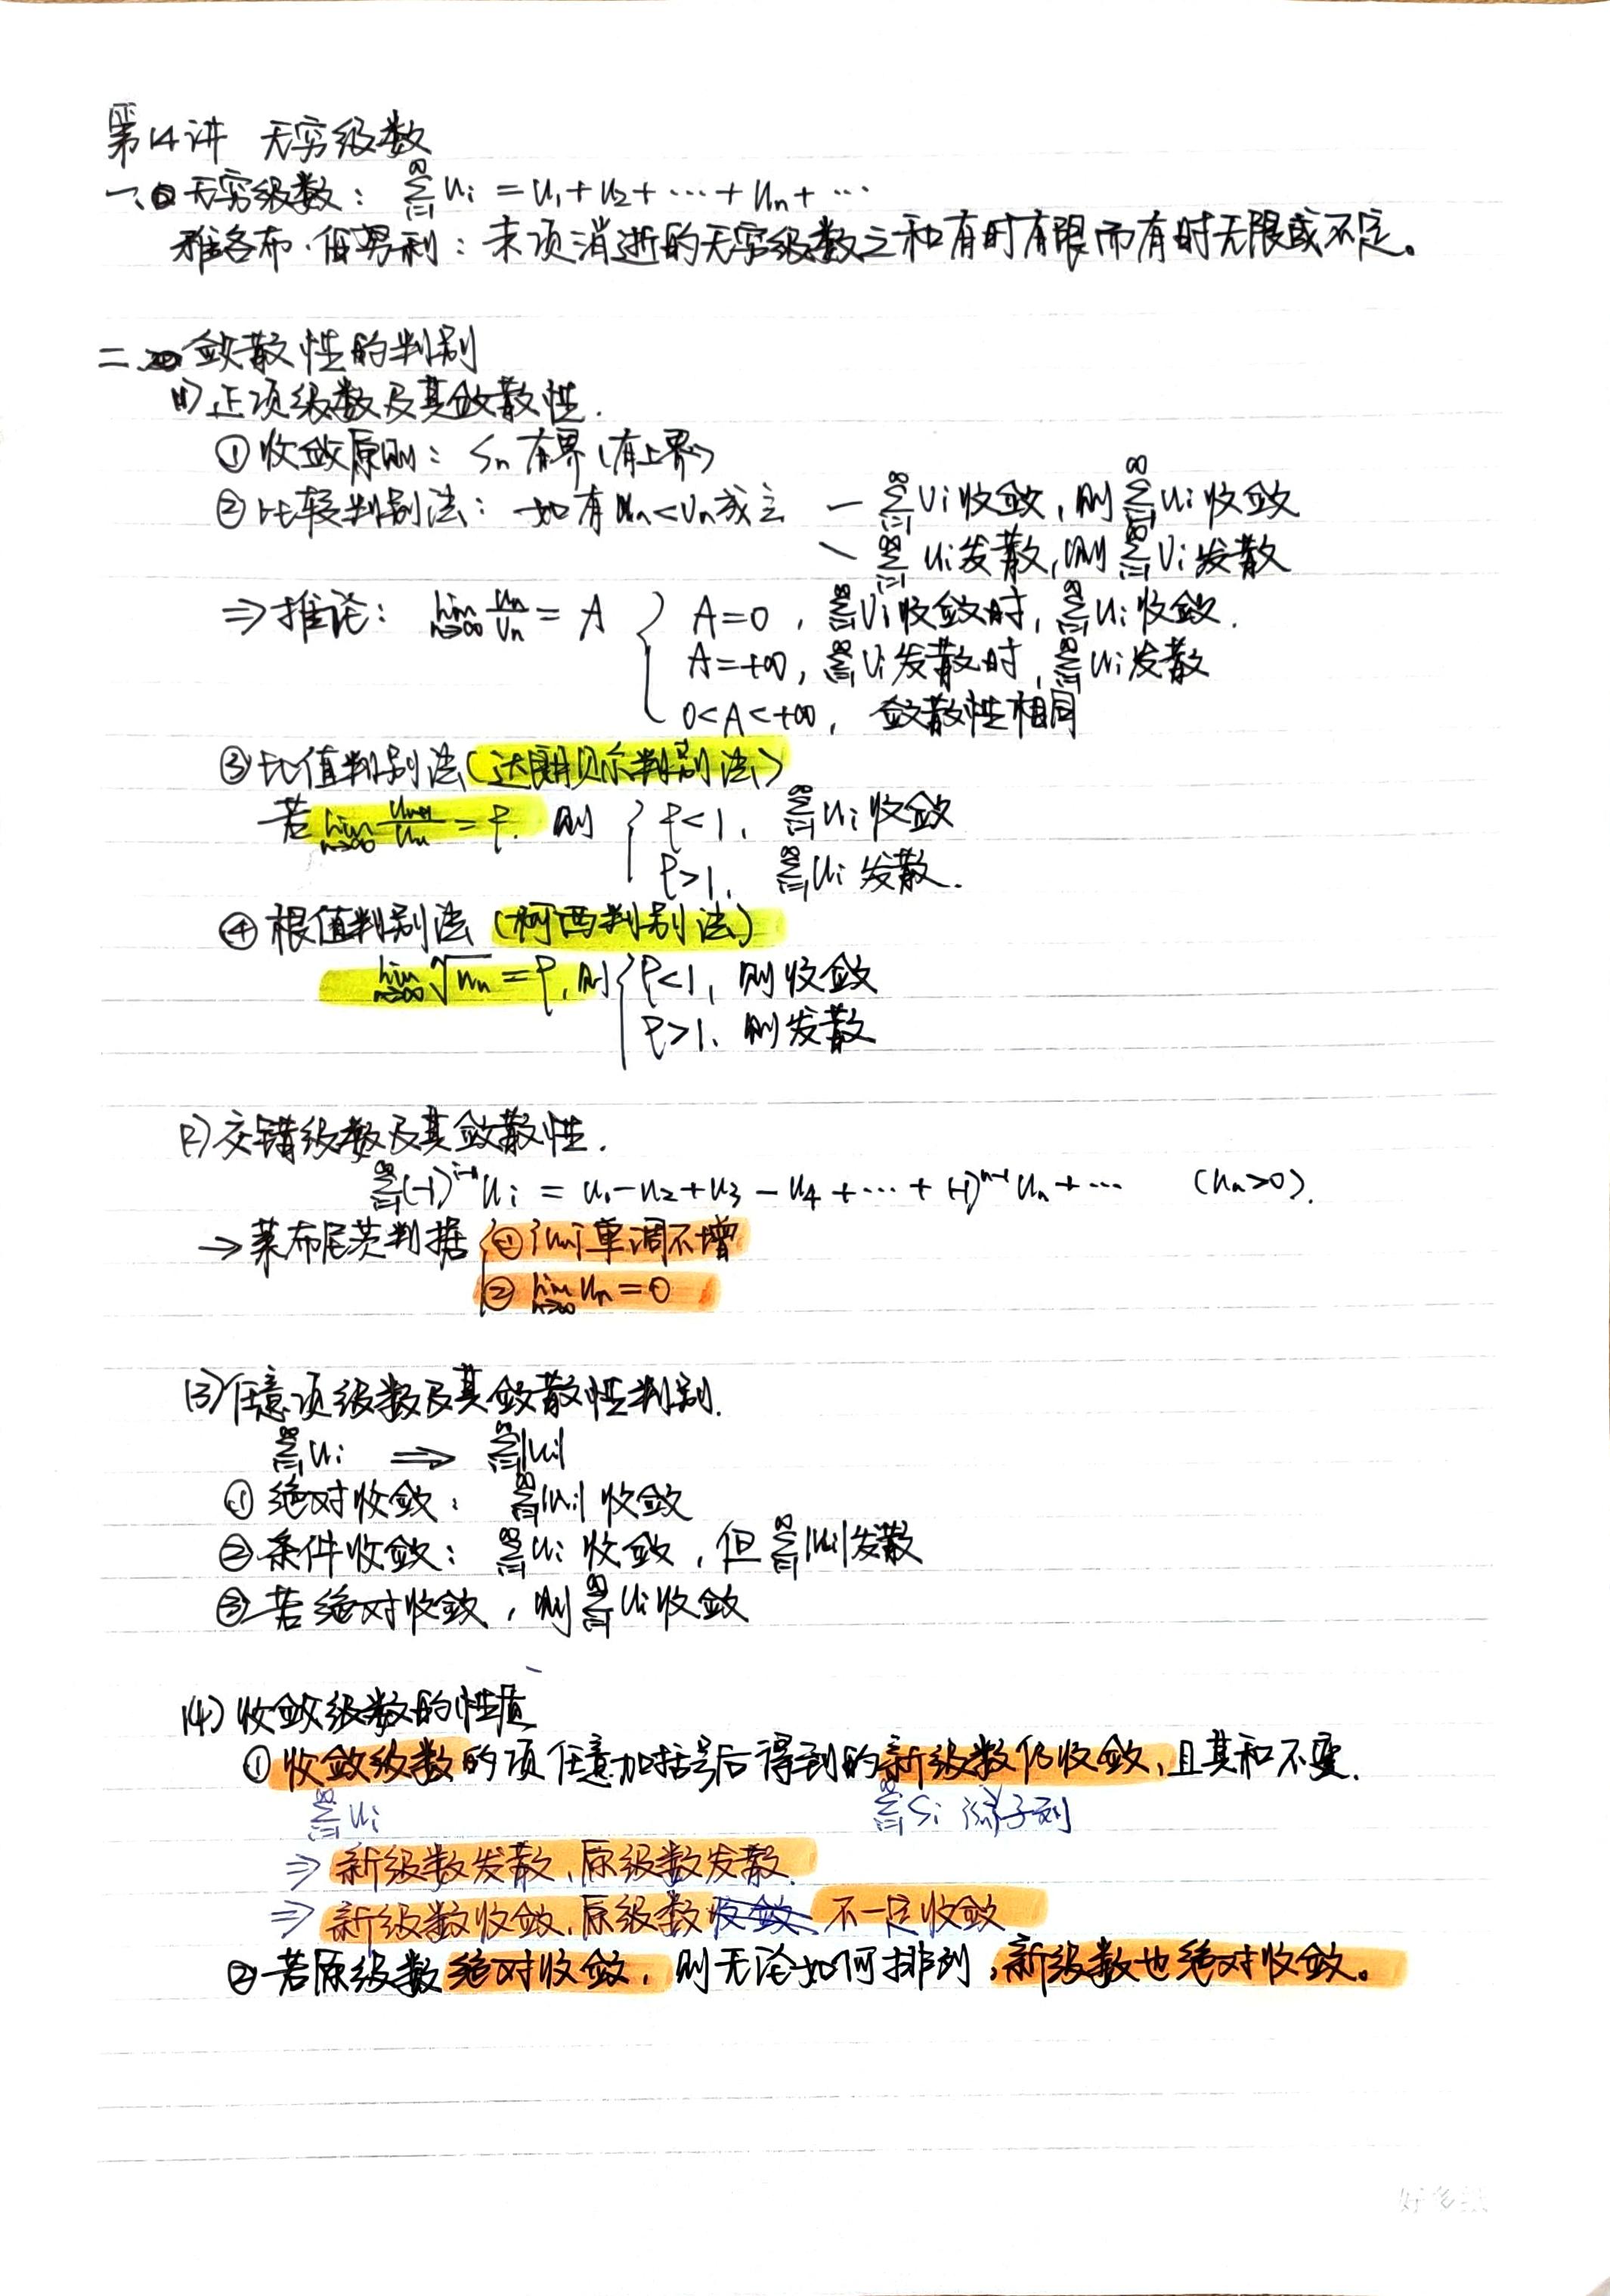 第14讲 无穷级数
一、无穷级数: ∑_{i=1}^{∞} u_i = u_1 + u_2 + … + u_n + …
雅各布·伯努利: 末项消逝的无穷级数之和有时有限而有时无限或不定。
二、敛散性的判别
(1) 正项级数及其敛散性.
① 收敛原则: S_n 有界(有上界)
② 比较判别法: 如有 u_n < v_n 成立 — ∑_{i=1}^{∞} v_i 收敛, 则 ∑_{i=1}^{∞} u_i 收敛
\ ∑_{i=1}^{∞} u_i 发散, 则 ∑_{i=1}^{∞} v_i 发散
⇒ 推论: lim_{n→∞} u_n/v_n = A { A=0, ∑_{i=1}^{∞} v_i 收敛时, ∑_{i=1}^{∞} u_i 收敛.
A=+∞, ∑_{i=1}^{∞} v_i 发散时, ∑_{i=1}^{∞} u_i 发散
0<A<+∞, 敛散性相同
③ 比值判别法(达朗贝尔判别法)
若 lim_{n→∞} u_{n+1}/u_n = ρ, 则 { ρ<1, ∑_{i=1}^{∞} u_i 收敛
ρ>1, ∑_{i=1}^{∞} u_i 发散.
④ 根值判别法 (柯西判别法)
lim_{n→∞} ⁿ√u_n = ρ, 则 { ρ<1, 则收敛
ρ>1, 则发散
(2) 交错级数及其敛散性.
∑_{i=1}^{∞} (-1)^{i-1} u_i = u_1 - u_2 + u_3 - u_4 + … + (-1)^{n-1} u_n + … (u_n>0).
→ 莱布尼茨判据 { ① {u_n} 单调不增
② lim_{n→∞} u_n = 0
(3) 任意项级数及其敛散性判别.
∑_{i=1}^{∞} u_i ⇒ ∑_{i=1}^{∞} |u_i|
① 绝对收敛: ∑_{i=1}^{∞} |u_i| 收敛
② 条件收敛: ∑_{i=1}^{∞} u_i 收敛, 但 ∑_{i=1}^{∞} |u_i| 发散
③ 若绝对收敛, 则 ∑_{i=1}^{∞} u_i 收敛
(4) 收敛级数的性质
① 收敛级数的项任意加括号后得到的新级数仍收敛, 且其和不变.
∑_{i=1}^{∞} u_i ∑_{i=1}^{∞} S_i {S_n}子列
⇒ 新级数发散, 原级数发散.
⇒ 新级数收敛, 原级数 不一定收敛
② 若原级数绝对收敛, 则无论如何排列, 新级数也绝对收敛。
好多纸